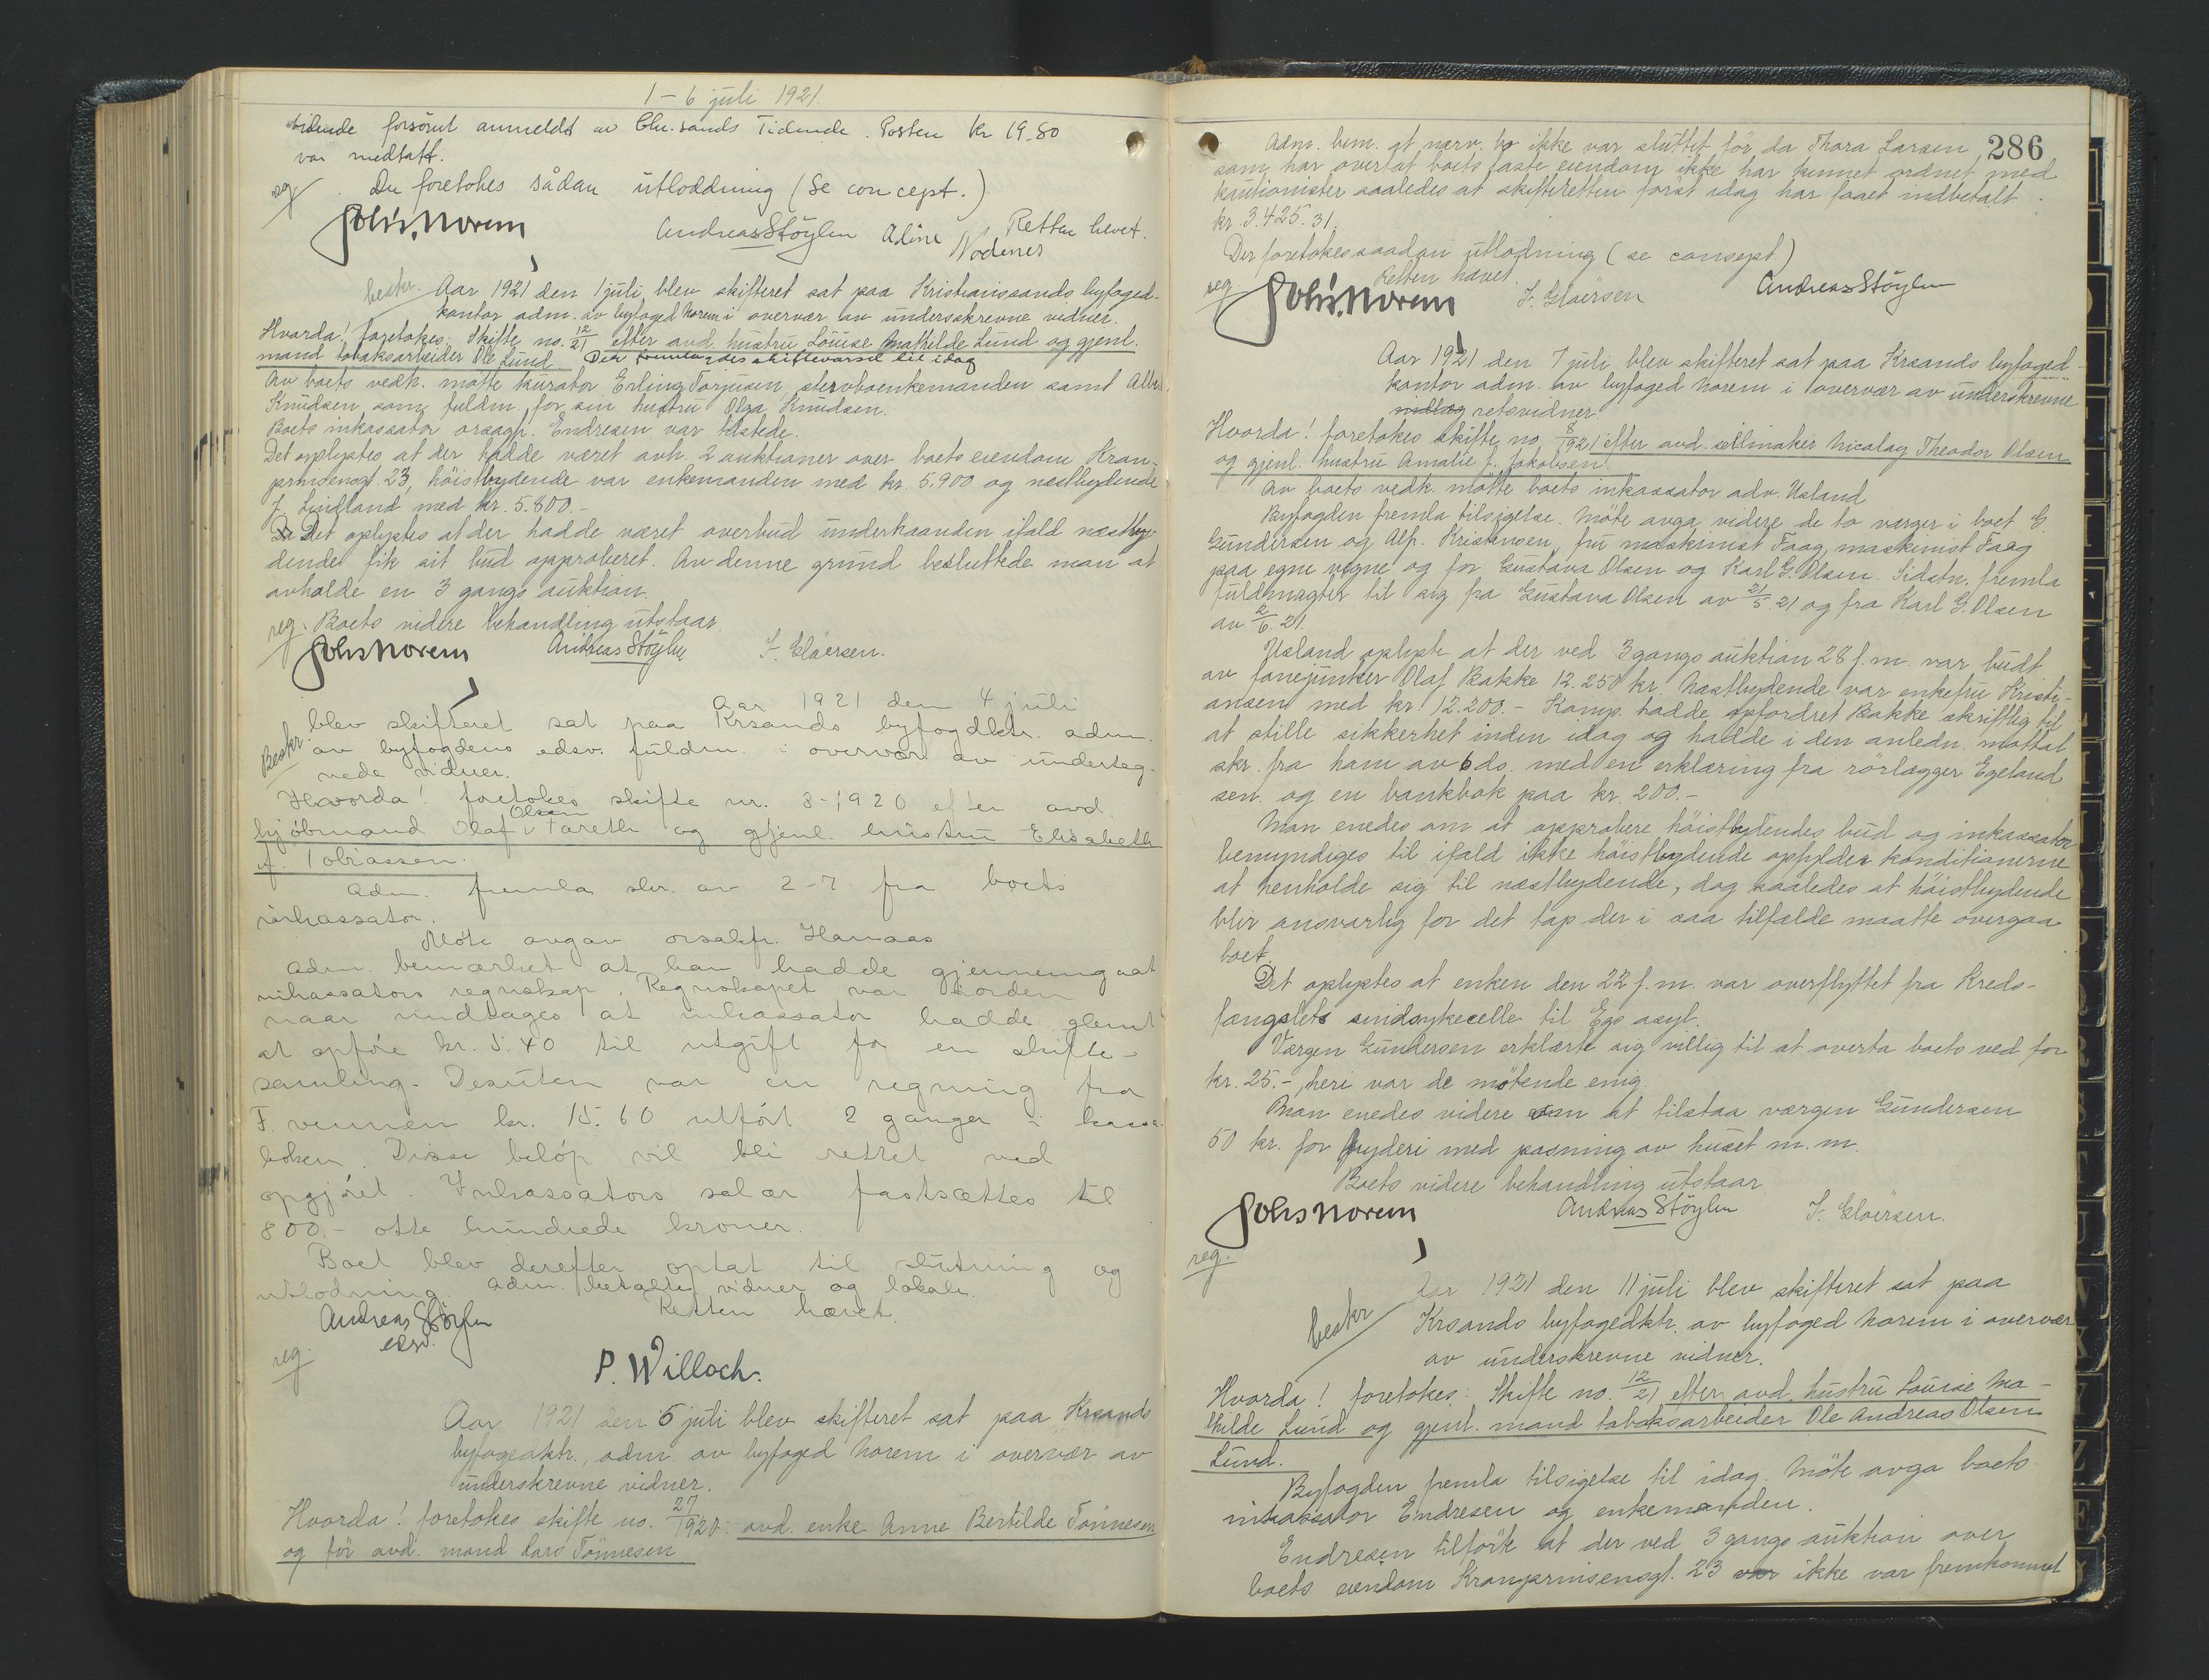 1 – 6 juli 1921
tidende forsömt anmeldt av Chr.sands Tidende. Posten kr 19.80
var medtatt.
reg. Der foretokes sådan utloddning (se concept.)
Retten hevet.
Johs. Norem Andreas Stöylen Aline Nodenes
beskr. Aar 1921 den 1 juli blev skifteret sat paa Kristianssands byfoged-
kontor adm. av byfoged Norem i overvær av underskrevne vidner.
Hvorda! foretokes: Skifte no. 12/21 efter avd. hustru Louise Mathilde Lund og gjenl.
mand tobaksarbeider Ole Lund. Der fremlagdes skiftevarsel til idag
Av boets vedk. mötte kurator Erling Torjusen, stervboenkemanden samt Albr.
Knudsen som fuldm. for sin hustru Olga Knudsen.
Boets inkassator orsagf. Endresen var tilstede.
Det oplystes at der hadde været avh. 2 auktioner over boets eiendom Kron-
prinsensgt. 23, höistbydende var enkemanden med kr. 5.900 og næstbydende
J. Lindland med kr. 5.800.-
Det oplystes at der hadde været overbud underhaanden ifald næstby-
dende fik sit bud approberet. Av denne grund besluttede man at
avholde en 3 gangs auktion.
reg. Boets videre behandling utstaar.
Johs Norem Andreas Stöylen F. Eloersen.
Aar 1921 den 4 juli
Beskr. blev skifteret sat paa Krsands byfogdktr. adm.
av byfogdens edsv. fuldm. i overvær av underteg-
nede vidner.
Hvorda! foretokes skifte nr. 3-1920 efter avd.
Olsen
kjöbmand Olaf Tareth og gjenl. hustru Elisabeth
f. Tobiassen.
Adm. fremla skr. av 2-7 fra boets
inkassator.
Möte avgav orsakfr. Hanaas
Adm. bemærket at han hadde gjennemgaat
inkassators regnskap. Regnskapet var i orden
naar undtages at inkassator hadde glemt
at opföre kr. 5.40 til utgift for en skifte-
samling. Desuten var en regning fra
F. vennen kr. 15.60 utfört 2 ganger i kasse-
boken. Disse belöp vil bli rettet ved
opgjöret. Inkassators salær fastsættes til
800.- otte hundrede kroner.
Boet blev derefter optat til slutning og
utlodning. Adm. betalte vidner og lokale.
Retten hævet.
Andreas Stöylen
edsv.
reg.
P. Willoch.
Aar 1921 den 6 juli blev skifteret sat paa Krsands
byfogedktr., adm. av byfoged Norem i overvær av
underskrevne vidner.
Hvorda! foretokes skifte no. 27/1920: avd. enke Anne Bertilde Tönnesen
og för avd. mand Lars Tönnesen
286
Adm. bem. at nærv. bo ikke var sluttet för da Thora Larsen
som har overtat boets faste eiendom ikke har kunnet ordnet med
kautionister saaledes at skifteretten först idag har faaet indbetalt
kr. 3.425.31.
Der foretokes saadan utlodning (se consept)
Retten hævet.
reg. Johs. Norem F. Eloersen Andreas Stöylen
Aar 1921 den 7 juli blev skifteret sat paa Krsands byfoged-
kontor adm. av byfoged Norem i overvær av underskrevne
retsvidner
Hvorda! foretokes skifte no. 8/1921 efter avd. seilmaker Nicolay Theodor Olsen
og gjenl. hustru Amalie f. Jakobsen.
Av boets vedk. mötte boets inkassator adv. Usland
Byfogden fremla tilsigelse. Möte avga videre de to værger i boet G.
Gundersen og Alf. Kristensen, fru maskinist Faag, maskinist Faag
paa egne vegne og for Gustava Olsen og Karl G. Olsen. Sidstn. fremla
fuldmagter til sig fra Gustava Olsen av 21/5.21 og fra Karl G. Olsen
av 2/6.21.
Usland oplyste at der ved 3 gangs auktion 28 f.m. var budt
av fanejunker Olaf Bakke 12.250 kr. Næstbydende var enkefru Kristi-
ansen med kr. 12.200.- Komp. hadde opfordret Bakke skriftlig til
at stille sikkerhet inden idag og hadde i den anledn. mottat
skr. fra ham av 6 ds. med en erklæring fra rörlægger Egeland
sen. og en bankbok paa kr. 200.-
Man enedes om at approbere höistbydendes bud og inkassator
bemyndiges til ifald ikke höistbydende opfylder konditionerne
at henholde sig til næstbydende, dog saaledes at höistbydende
blir ansvarlig for det tap der i saa tilfælde maatte overgaa
boet.
Det oplystes at enken den 22 f.m. var overflyttet fra Kreds-
fængslets sindsykecelle til Egs asyl.
Værgen Gundersen erklærte sig villig til at overta boets ved for
kr. 25.-, heri var de mötende enig.
Man enedes videre om at tilstaa værgen Gundersen
50 kr. for bryderi med pasning av huset m.m.
Boets videre behandling utstaar
Johs Norem Andreas Stöylen F. Eloersen.
reg.
beskr Aar 1921 den 11 juli blev skifteret sat paa
Krsands byfogedktr. av byfoged Norem i overvær
av underskrevne vidner.
Hvorda! foretokes: Skifte no. 12/21 efter avd. hustru Louise Ma-
thilde Lund og gjenl. mand tobaksarbeider Ole Andreas Olsen
Lund.
Byfogden fremla tilsigelse til idag. Möte avga boets
inkassator Endresen og enkemanden.
Endresen tilförte at der ved 3 gangs auktion over
boets eiendom Kronprinsensgt. 23 var ikke var fremkommet